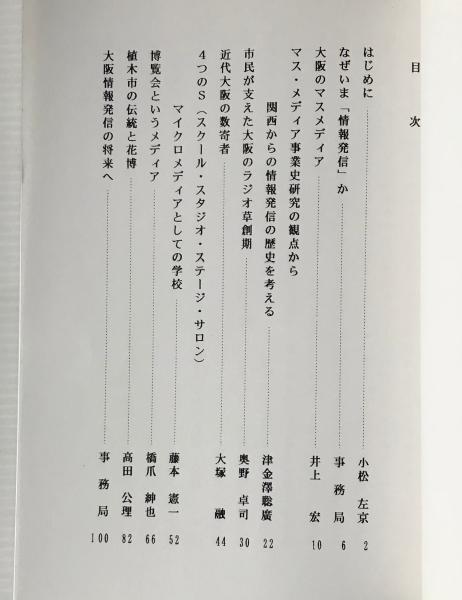 目次
はじめに……小松 左京 2
なぜいま「情報発信」か……事務局 6
大阪のマスメディア……井上 宏 10
マス・メディア事業史研究の観点から
関西からの情報発信の歴史を考える……津金澤聰廣 22
市民が支えた大阪のラジオ草創期……奥野 卓司 30
近代大阪の数寄者……大塚 融 44
4つのS（スクール・スタジオ・ステージ・サロン）
マイクロメディアとしての学校……藤本 憲一 52
博覧会というメディア……橋爪 紳也 66
植木市の伝統と花博……高田 公理 82
大阪情報発信の将来へ……事務局 100